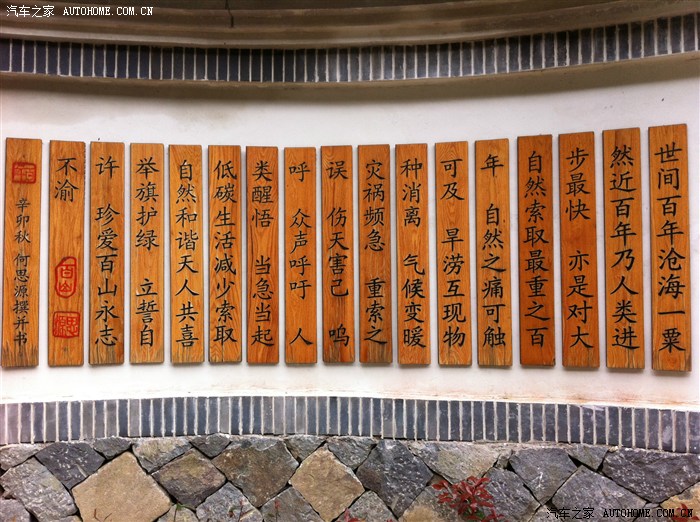 汽车之家 AUTOHOME.COM.CN
世间百年沧海一粟
然近百年乃人类进
步最快 亦是对大
自然索取最重之百
年 自然之痛可触
可及 旱涝互现物
种消离 气候变暖
灾祸频急 重索之
误 伤天害己 呜
呼 众声呼吁 人
类醒悟 当急当起
低碳生活减少索取
自然和谐天人共喜
举旗护绿 立誓自
许 珍爱百山永志
不渝
百山
辛卯秋 何思源撰并书
汽车之家 AUTOHOME.COM.CN